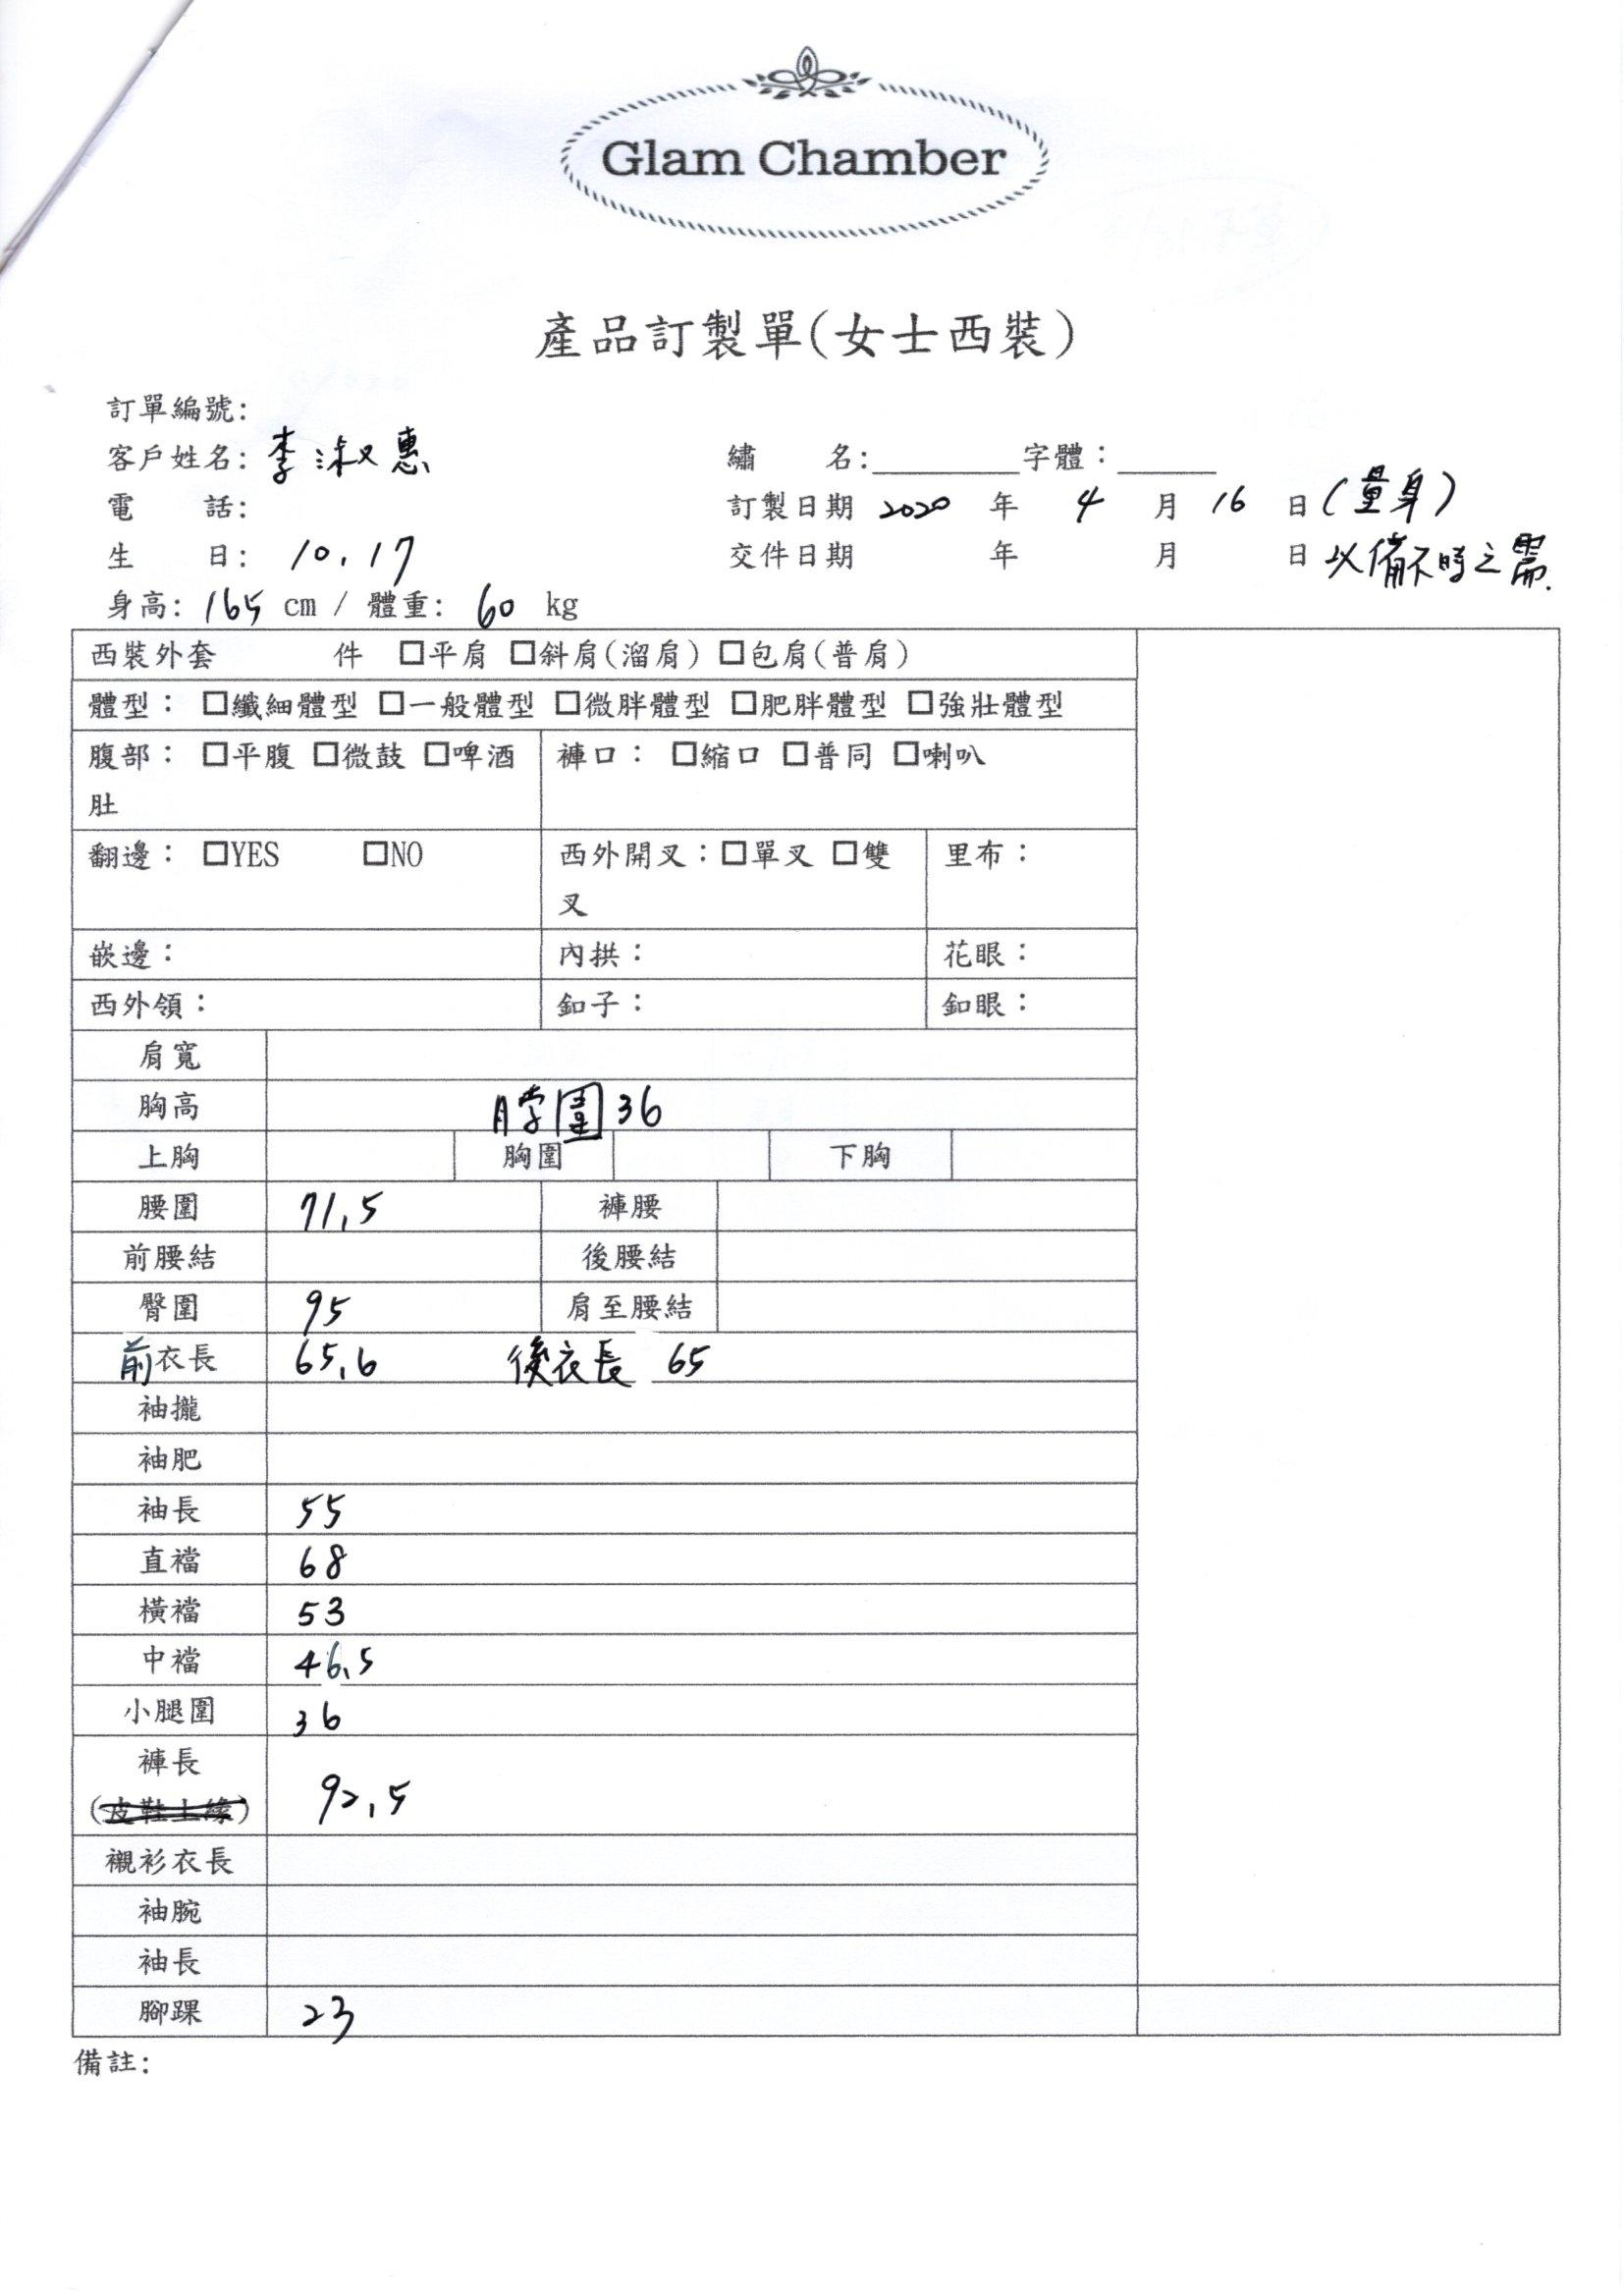 Glam Chamber
產品訂製單(女士西裝)
訂單編號:
客戶姓名: 李淑惠 繡 名:________字體：_____
電 話: 訂製日期 2020 年 4 月 16 日(量身)
生 日: 10.17 交件日期 年 月 日 以備不時之需.
身高: 165 cm / 體重: 60 kg
西裝外套 件 □平肩 □斜肩(溜肩) □包肩(普肩)
體型： □纖細體型 □一般體型 □微胖體型 □肥胖體型 □強壯體型
腹部： □平腹 □微鼓 □啤酒肚 褲口： □縮口 □普同 □喇叭
翻邊： □YES □NO 西外開叉：□單叉 □雙叉 里布：
嵌邊： 內拱： 花眼：
西外領： 釦子： 釦眼：
肩寬
胸高
脖圍 36
上胸 胸圍 下胸
腰圍 71.5 褲腰
前腰結 後腰結
臀圍 95 肩至腰結
前衣長 65.6 後衣長 65
袖攏
袖肥
袖長 55
直襠 68
橫襠 53
中襠 46.5
小腿圍 36
褲長 92.5
(皮鞋上緣)
襯衫衣長
袖腕
袖長
腳踝 23
備註: